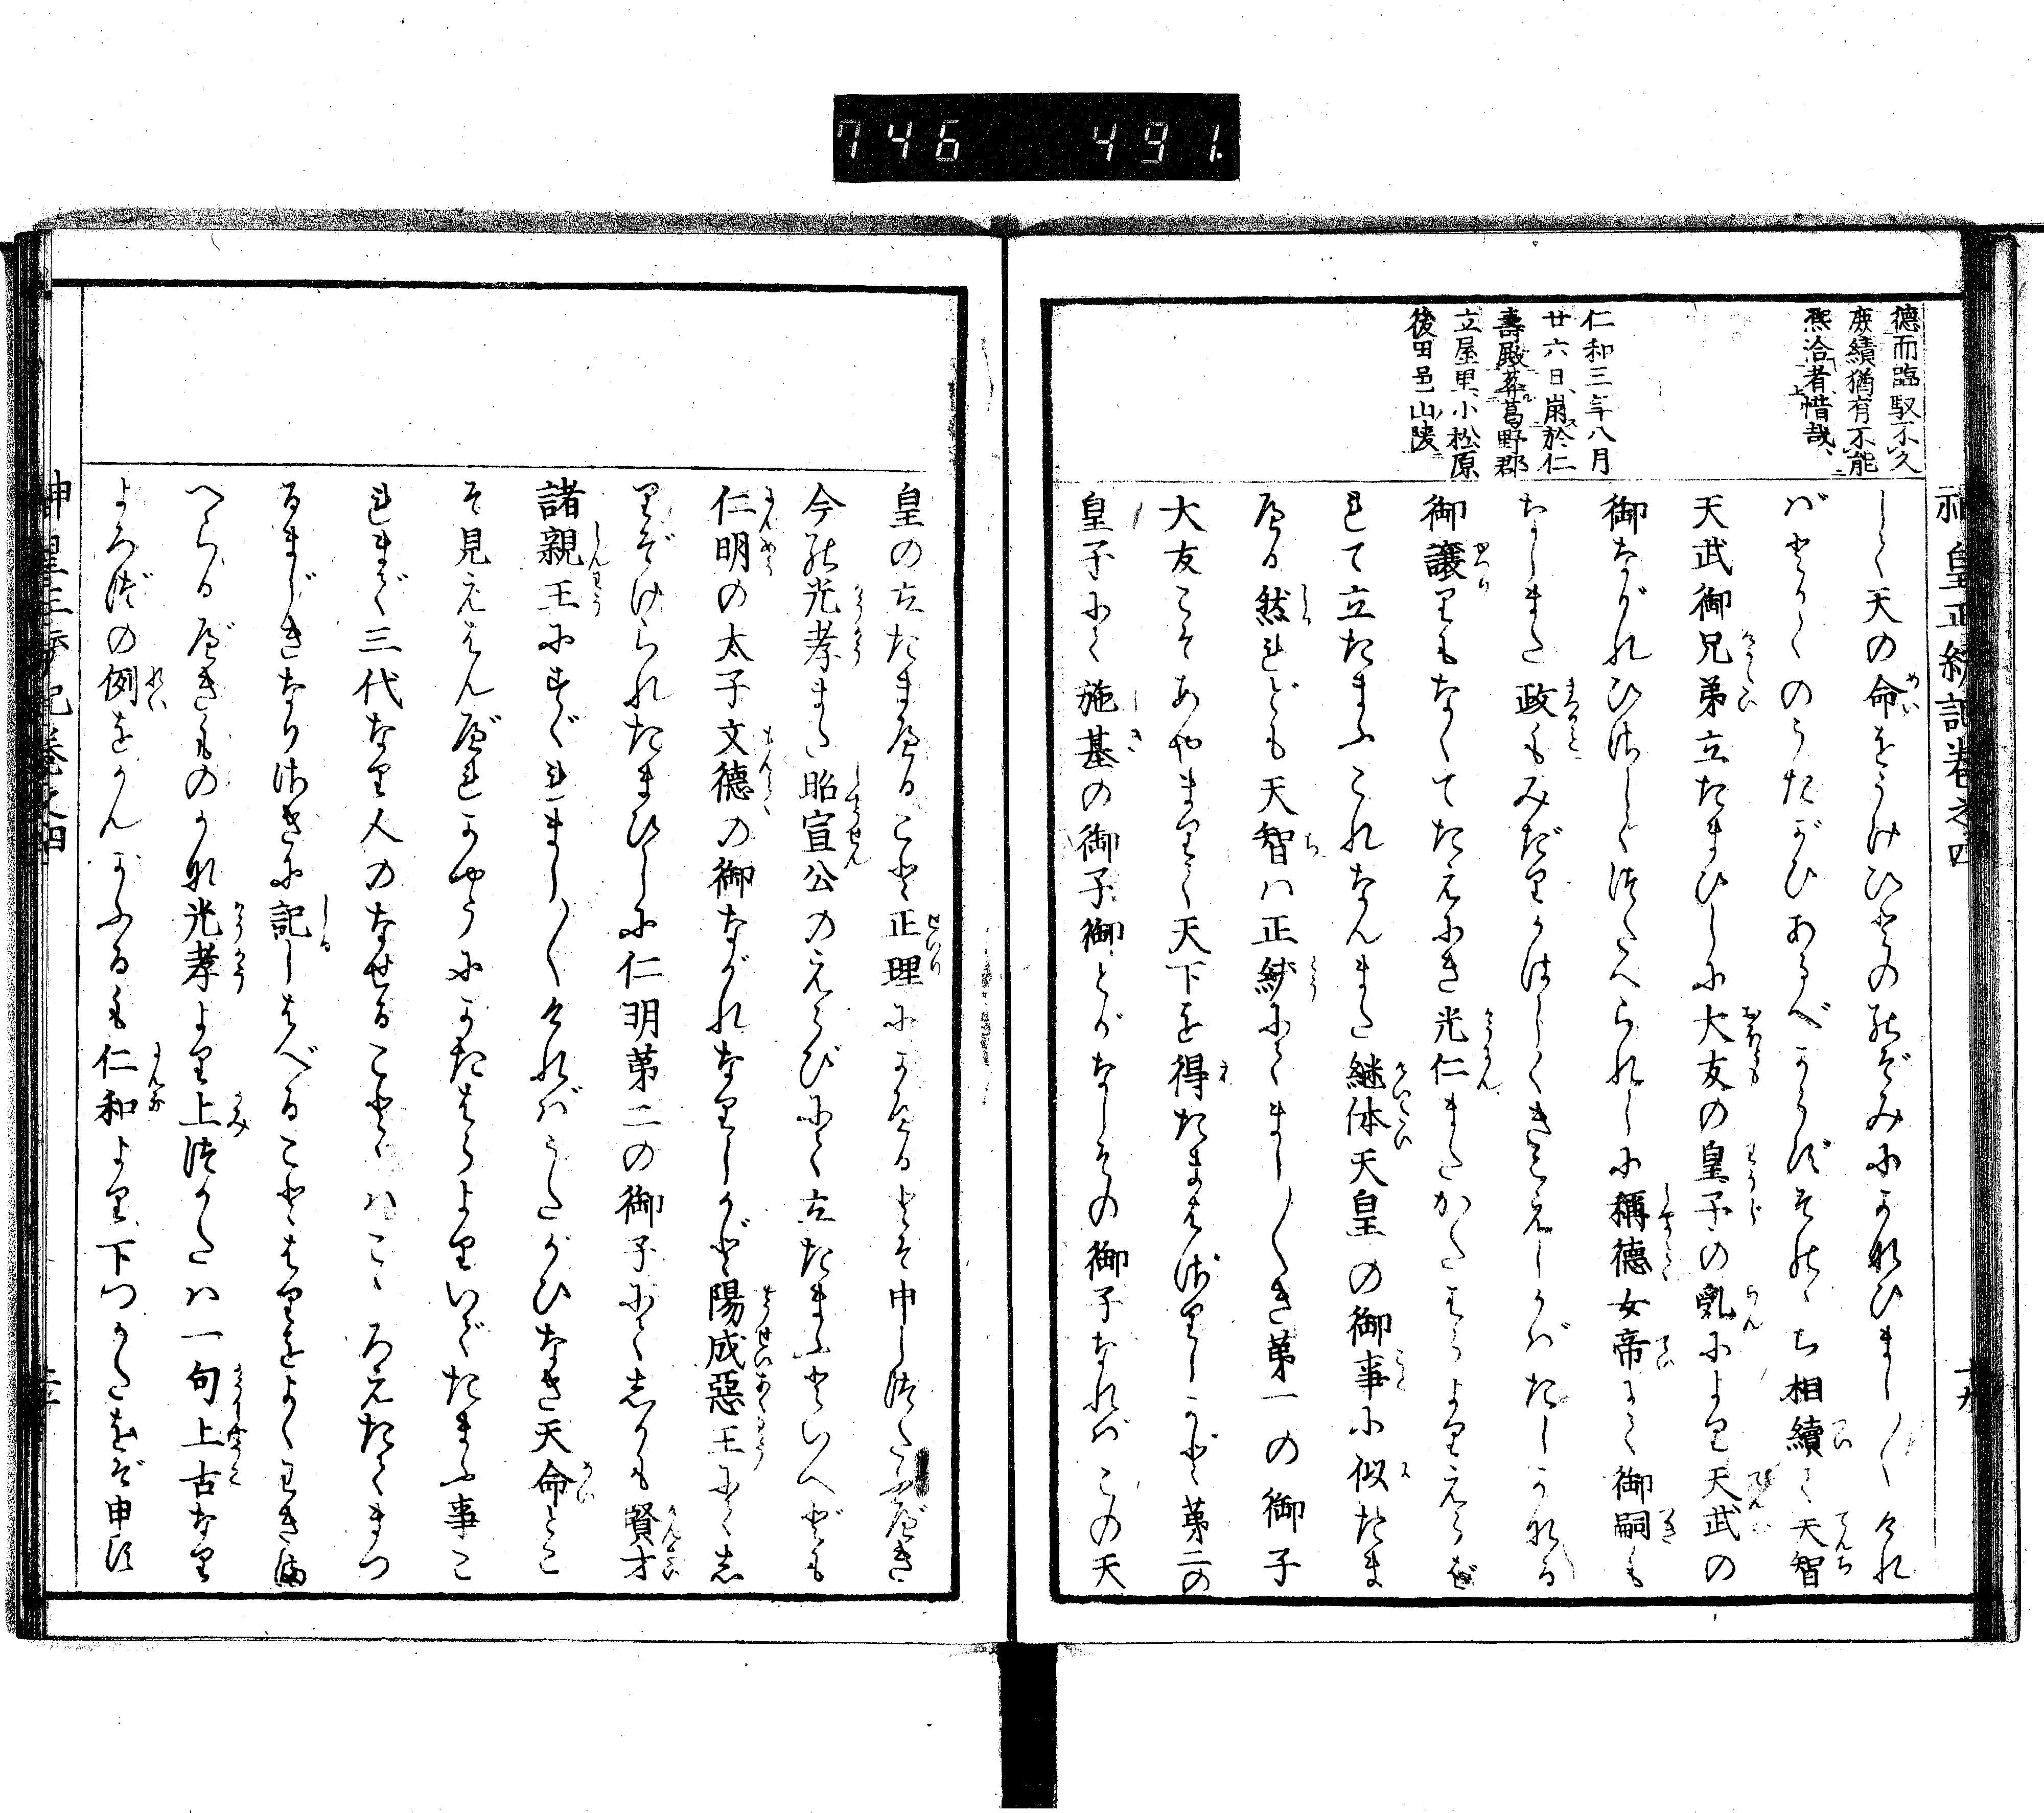 746 491.
德而臨馭不久
厥績猶有不能
熈洽者惜哉、
仁和三年八月
廿六日、崩於仁
壽殿葬葛野郡
立屋里小松原
後田邑山陵
神皇正統記巻之四
十九
して天の命をうけひとののぞみにかなひまし〳〵けれ
ばとかくのうたがひあるべからずその丶ち相續て天智
天武御兄弟立たまひしに大友の皇子の乱によりて天武の
御ながれひさしくつたへられしに稱德女帝にて御嗣も
なしまた政もみだりがはしくきこえしかばたしかなる
御讓りもなくてたえにき光仁またかたはらよりえらば
れて立たまふこれなんまた継体天皇の御事に似たま
へる然れども天智は正統にてまし〳〵き第一の御子
大友こそあやまりて天下を得たまはざりしかど第二の
皇子にて施基の御子御とがなしその御子なればこの天
皇の立たまへること正理にかへるとぞ申しつたふべき
今の光孝また昭宣公のえらびにて立たまふといへども
仁明の太子文德の御ながれなりしかど陽成惡王にて志
りぞけられたまひしに仁明第二の御子にて志かも賢才
諸親王にすぐれまし〳〵ければうたがひなき天命とこ
そ見えはんべれかやうにかたはらよりいでたまふ事こ
れまで三代なり人のなせることとはこ丶ろえたてまつ
るまじきなりさきに記しはべることはりをよくわきま
へらるべきものかな光孝より上つかたは一向上古なり
よろづの例をかんがふるも仁和より下つかたをぞ申す
神皇正統記巻之四